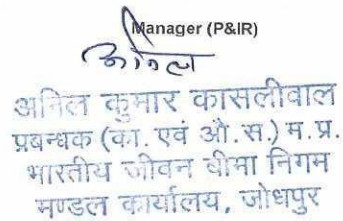 Manager (P&IR)
अनिल
अनिल कुमार कासलीवाल
प्रबन्धक (का. एवं औ.स.) म.प्र.
भारतीय जीवन बीमा निगम
मण्डल कार्यालय, जोधपुर